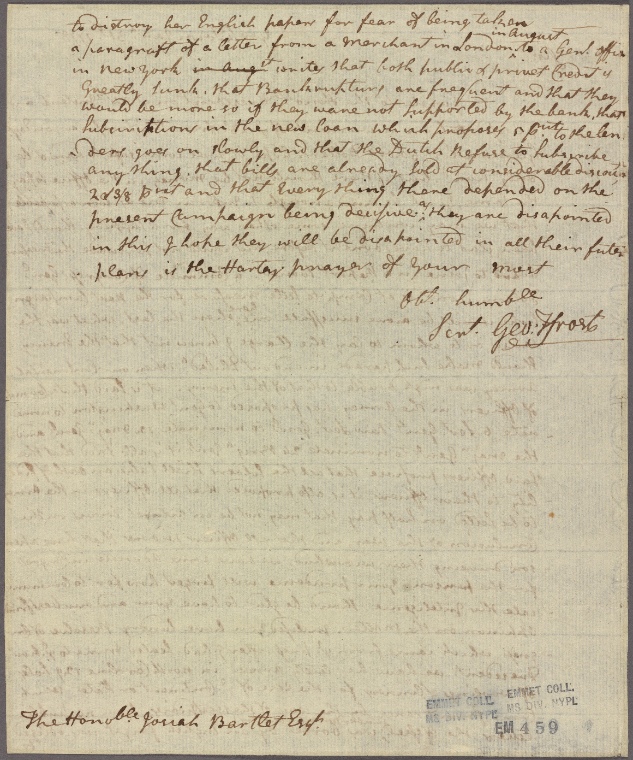 to distroy her English papers for fear of being taken
in August
a paragraft of a letter from a merchant in London, to a Genl. offis
in New york in Augt writes that both public & privet Credit is
Greatly sunk. that Bankrupturs are frequent and that they
would be more so if they ware not supported by the bank, that
subscriptions in the new loan which proposes 5 prct. to the len
ders goes on slowly and that the Dutch Refuse to subscribe
any thing. that bills are already sold at considerable discount
prct and that Every thing there depended on the
present Campaign being decisive; as they are disapointed
in this I hope they will be disapointed in all their futer
plans is the Hartey prayer of your most
Obt. humble
Sert. Geo: Frost
The Honoble Josiah Bartlet Esqr.
EMMET COLL.
MS. DIV. NYPL
EMMET COLL.
MS. DIV. NYPL
EM 459